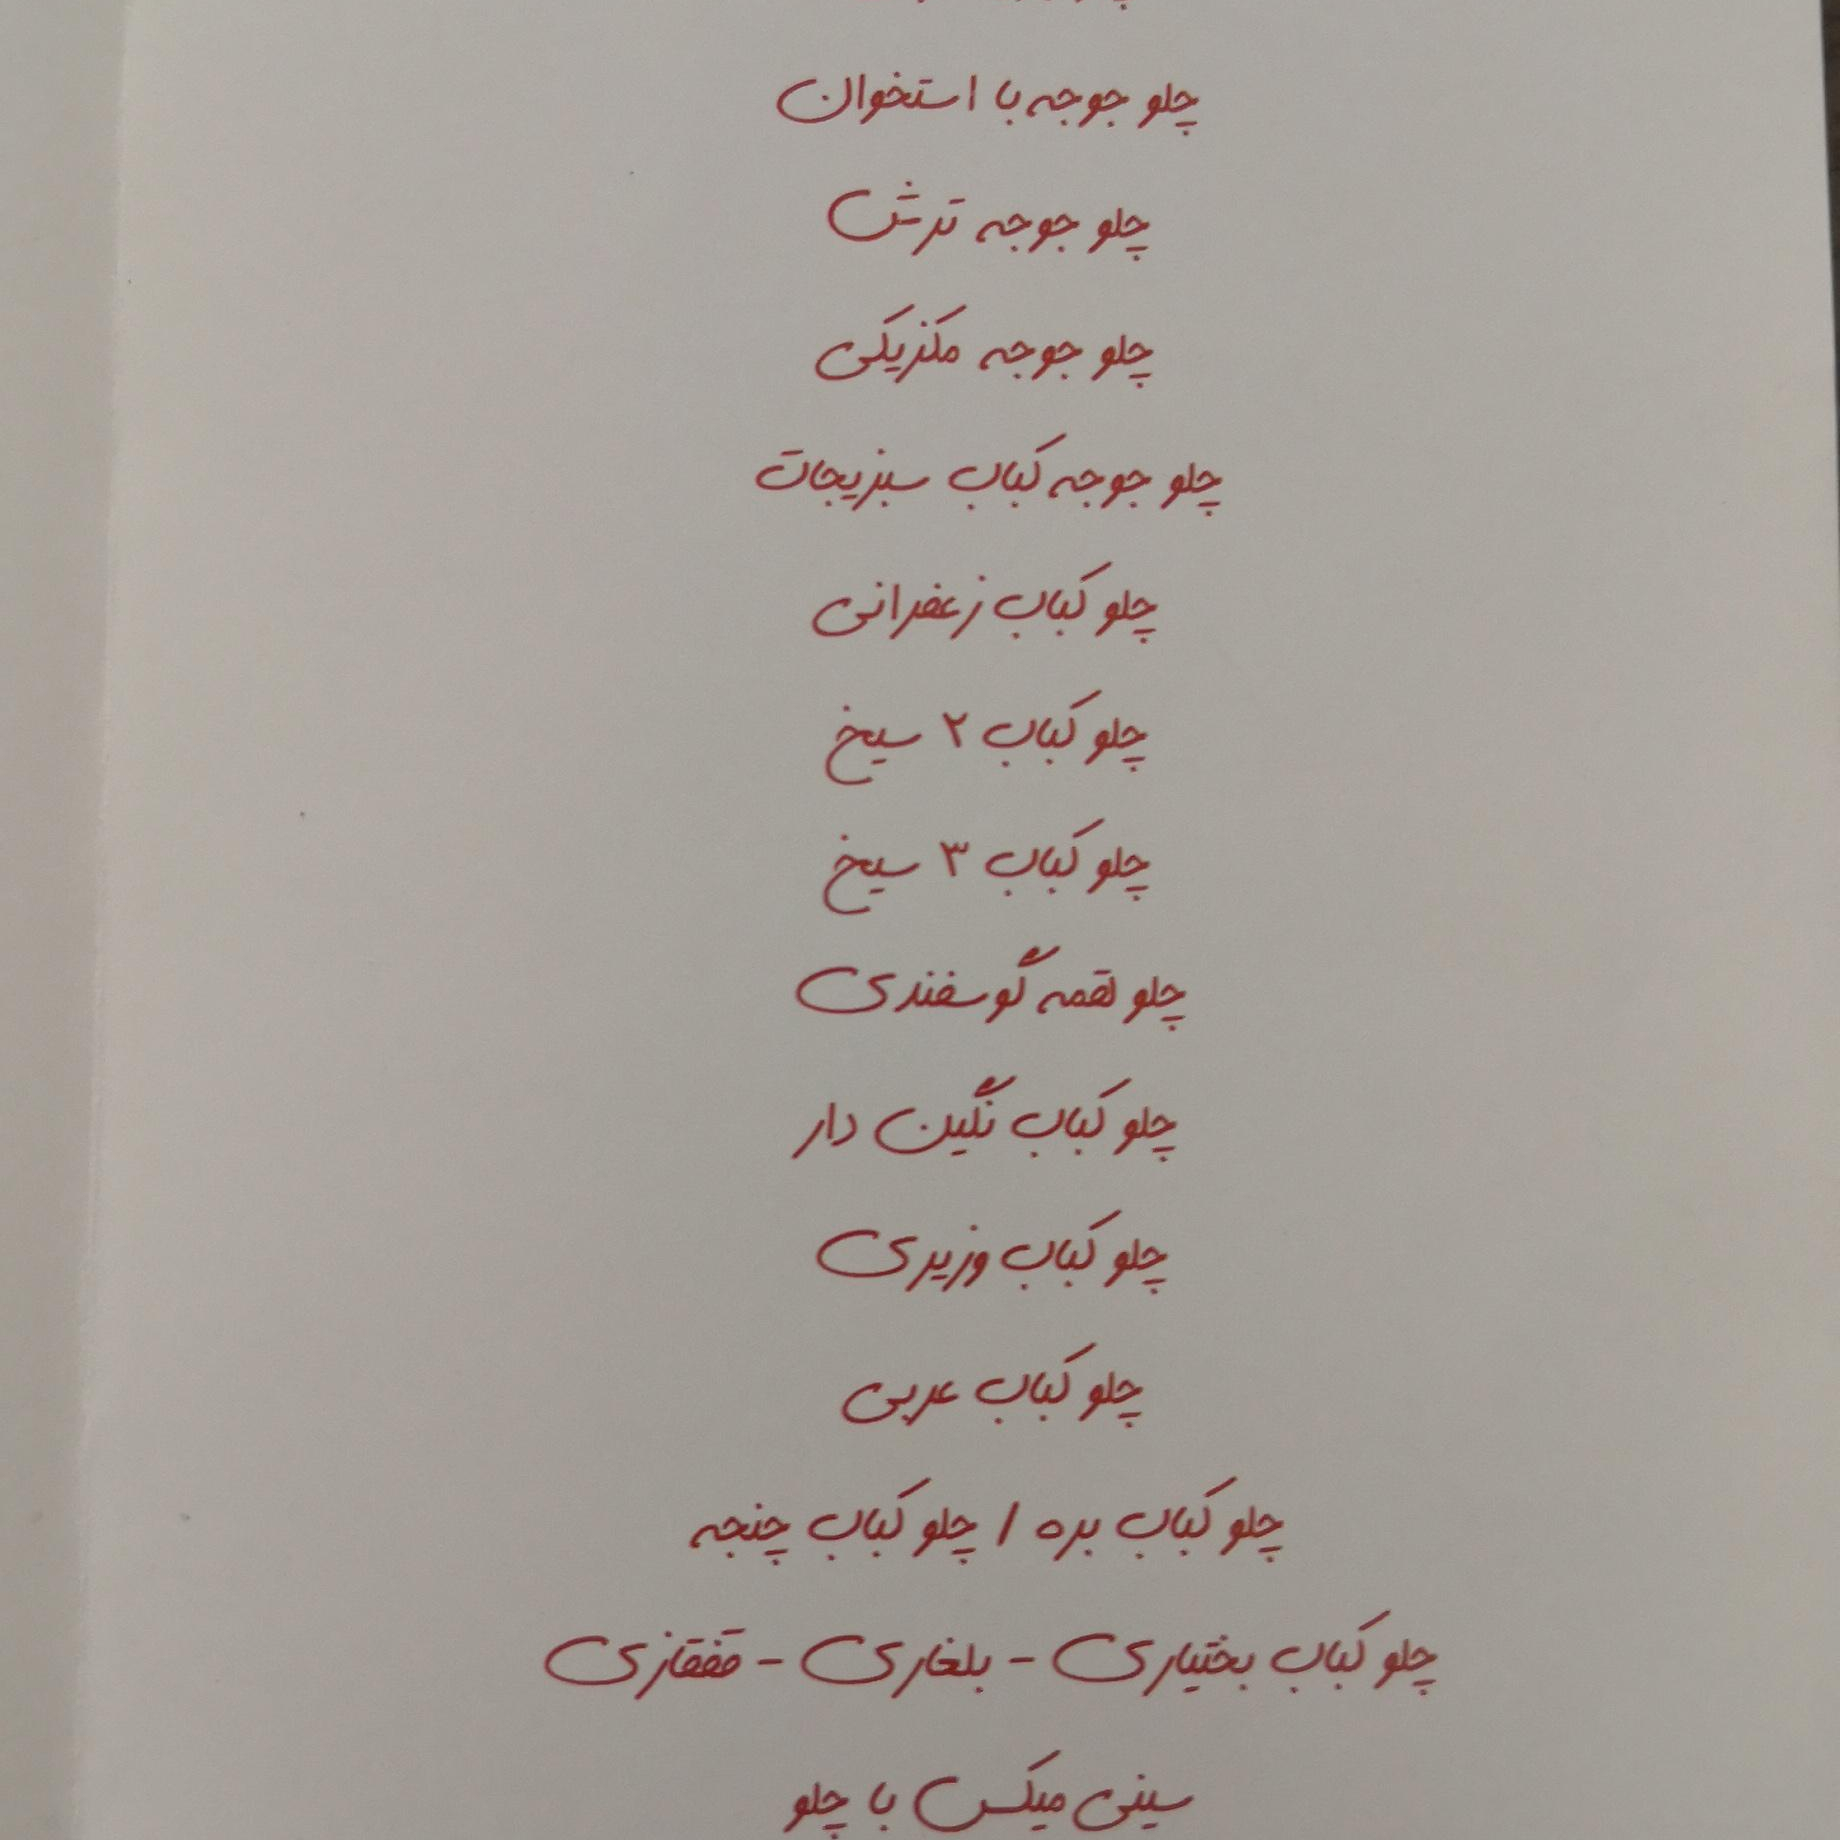 چلو جوجه با استخوان
چلو جوجه ترش
چلو جوجه مکزیکی
چلو جوجه کباب سبزیجات
چلو کباب زعفرانی
چلو کباب ۲ سیخ
چلو کباب ۳ سیخ
چلو لقمه گوسفندی
چلو کباب نگین دار
چلو کباب وزیری
چلو کباب عربی
چلو کباب بره / چلو کباب چنجه
چلو کباب بختیاری - بلغاری - قفقازی
سینی میکس با چلو